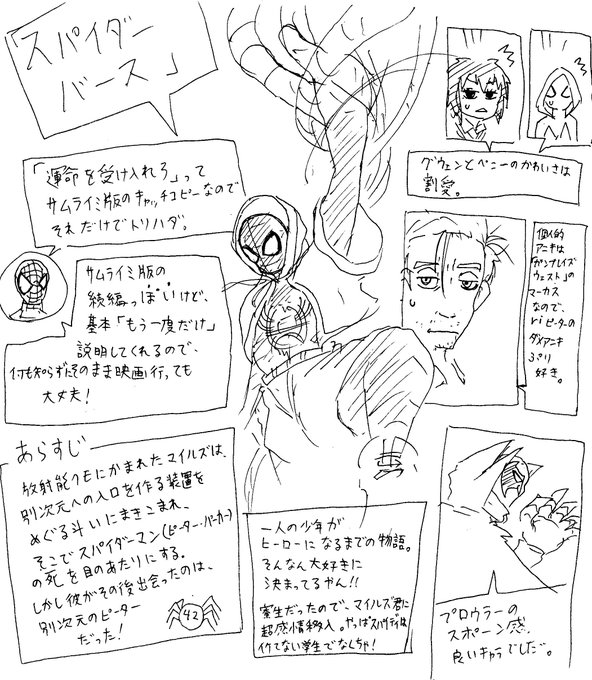 「スパイダー
バース」
「運命を受け入れろ」って
サムライミ版のキャッチコピーなので
それだけでトリハダ。
サムライミ版の
続編っぽいけど、
基本「もう一度だけ」
説明してくれるので、
何も知らずにそのまま映画行っても
大丈夫!
グウェンとペニーのかわいさは
割愛。
個人的
アニキは
「ガンブレイズ
ウエスト」の
マーカス
なので、
ピーターの
ダメアニキ
ぶり
好き。
あらすじ
放射能クモにかまれたマイルズは、
別次元への入口を作る装置を
めぐる斗いにまきこまれ、
そこでスパイダーマン(ピーター・パーカー)
の死を目のあたりにする。
しかし彼がその後出会ったのは、
別次元のピーター
だった!
42
一人の少年が
ヒーローになるまでの物語。
そんなん大好きに
決まってるやん!!
寮生だったので、マイルズ君に
超感情移入。やっぱスパイディは
イケてない学生でなくちゃ!
プロウラーの
スポーン感、
良いキャラでしたゾ。